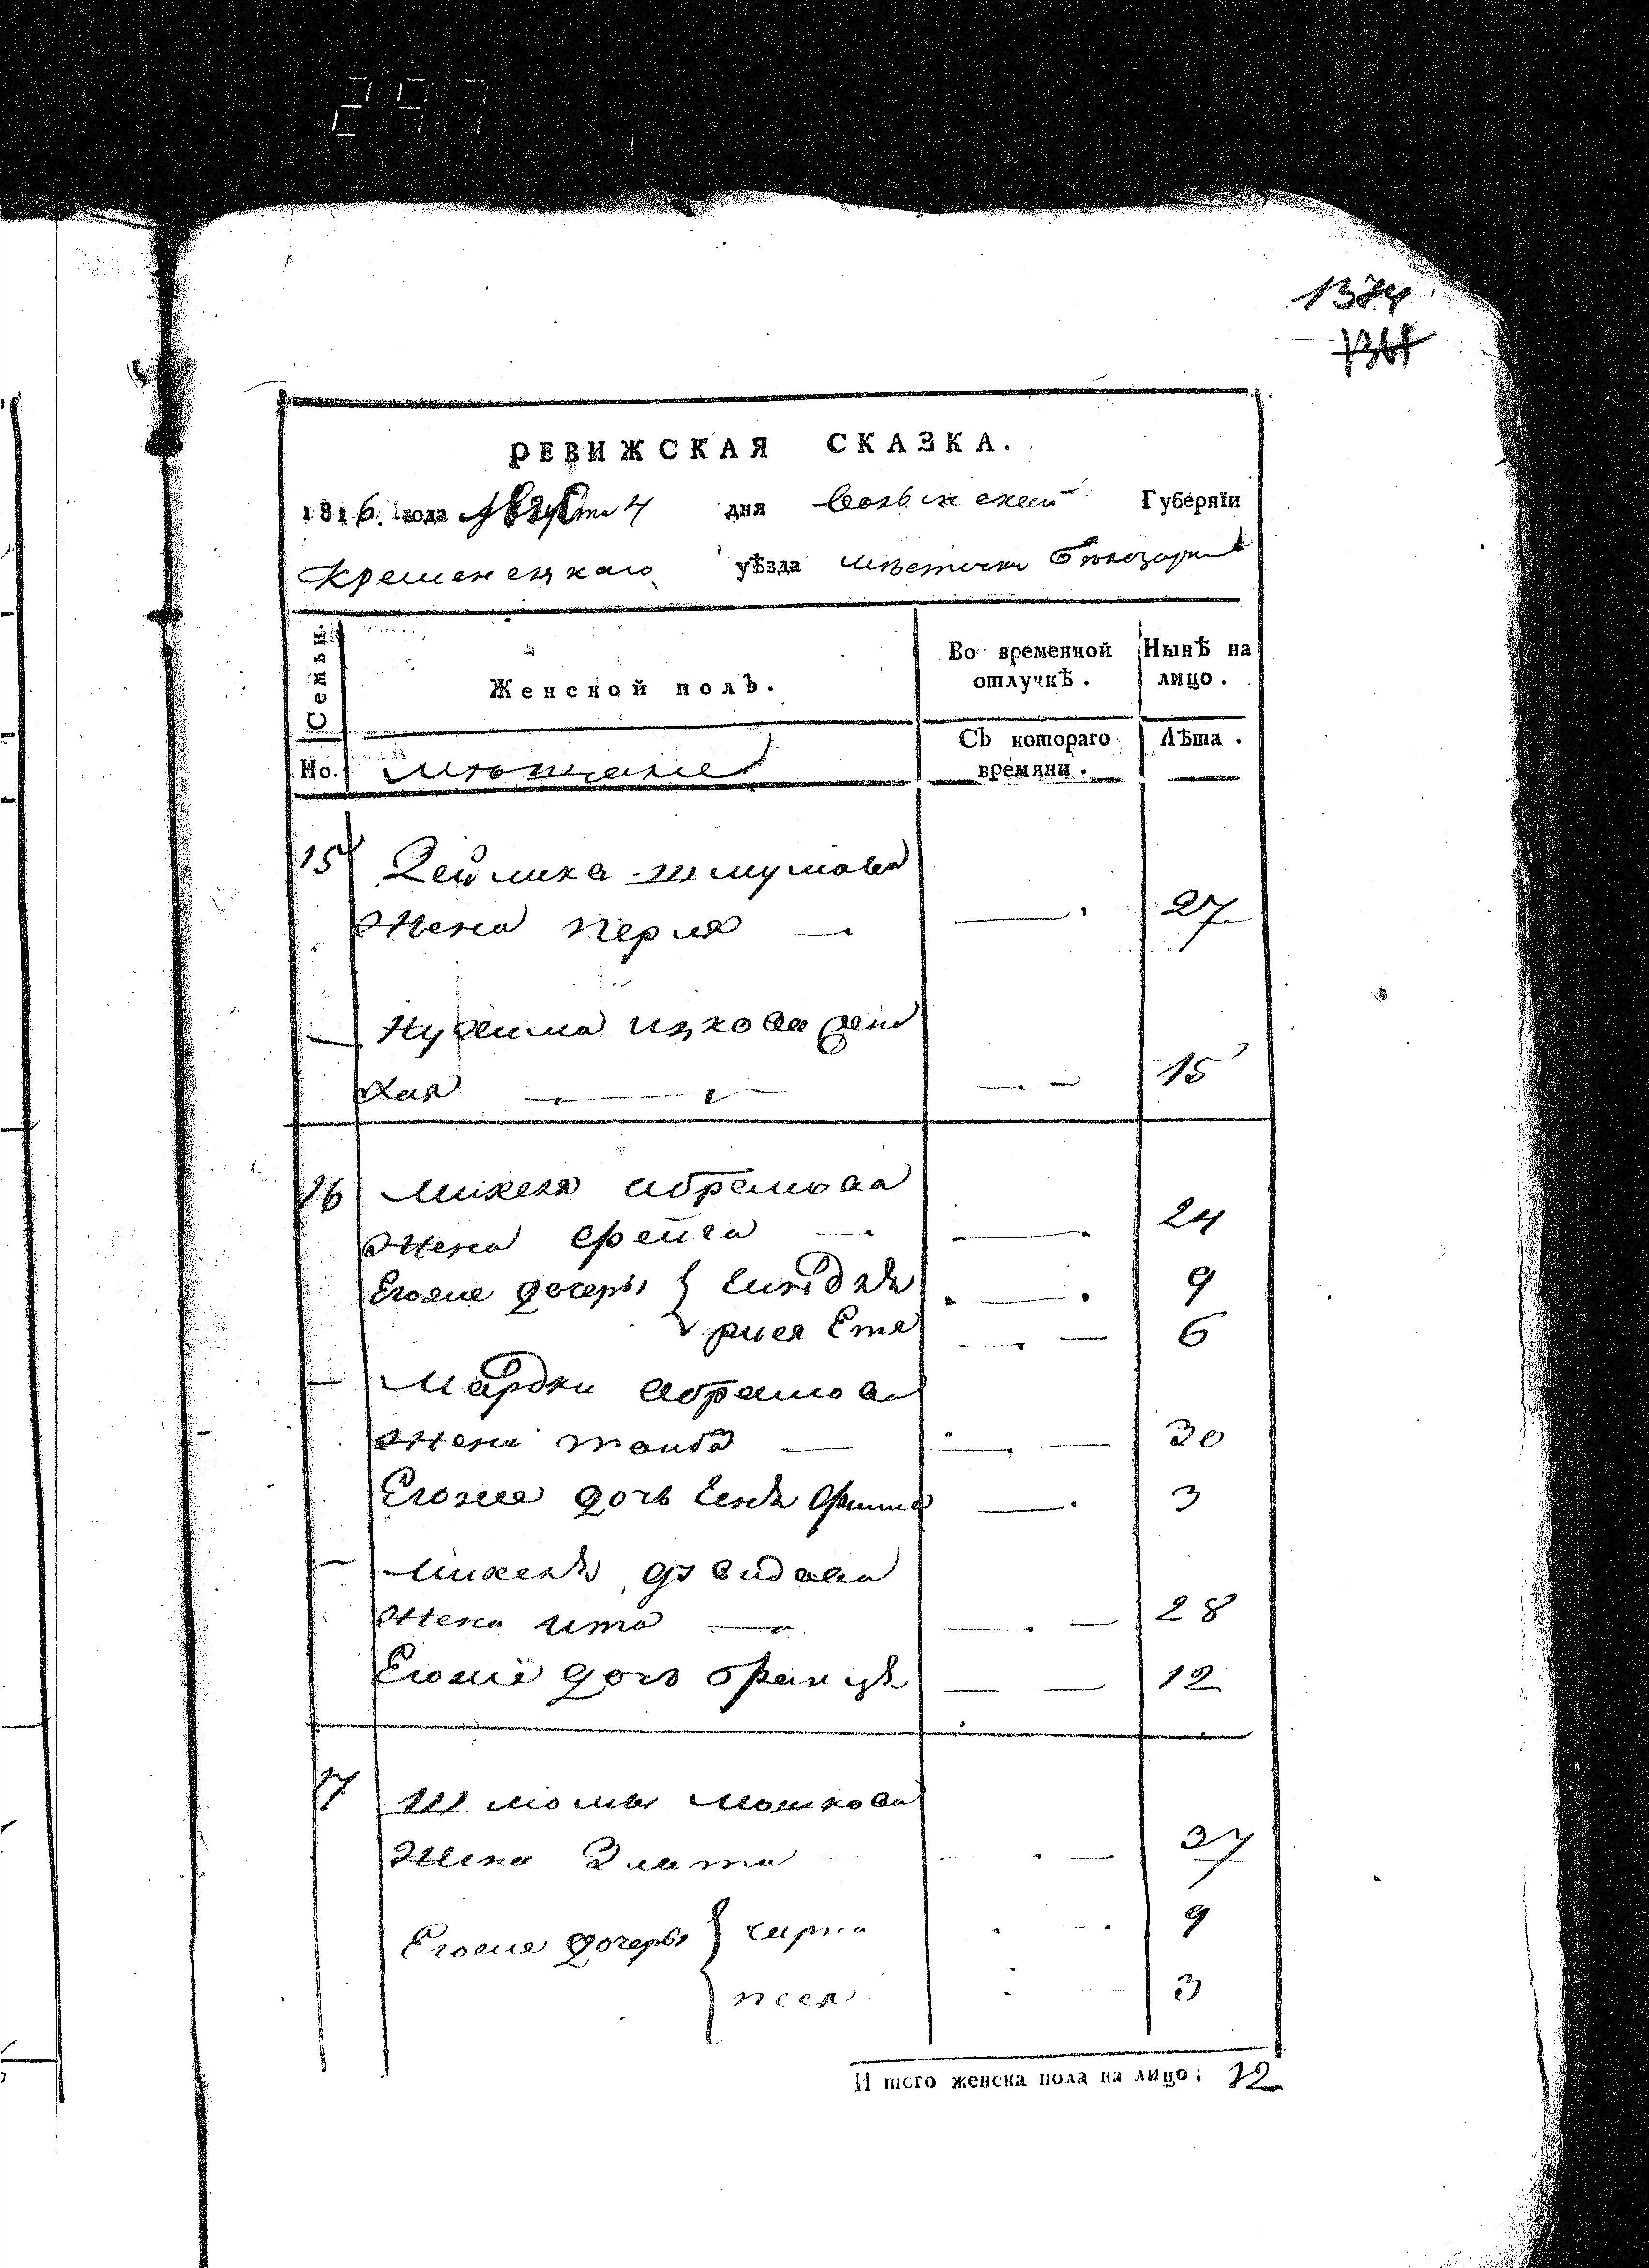 297
1374
1361
РЕВИЖСКАЯ СКАЗКА.
1816. года Августа 4 дня Волынской Губернїи
Кременецкаго уѣзда местечки Белозорки
Семьи.
Женской полъ.
Во временной отлучкѣ.
Нынѣ на лицо.
Но.
мещане
Съ котораго времяни.
Лѣта.
15 Зейлика шмулiова
Жена перля — 27
Нухима ицкова жена
Хая 15
16 Михеля абрамова
Жена фейга — 24
Егоже дочеры { Сындля 9
рися Етя 6
— Мардки абрамова
Жена тоиба — 30
Егоже дочь 3
— Михеля давидова
Жена ита — 28
Егоже дочь бранця 12
17 Шлiомы мошкова
Жена Злата 37
Егоже дочеры { чарна 9
песя 3
И того женска пола на лицо; 12